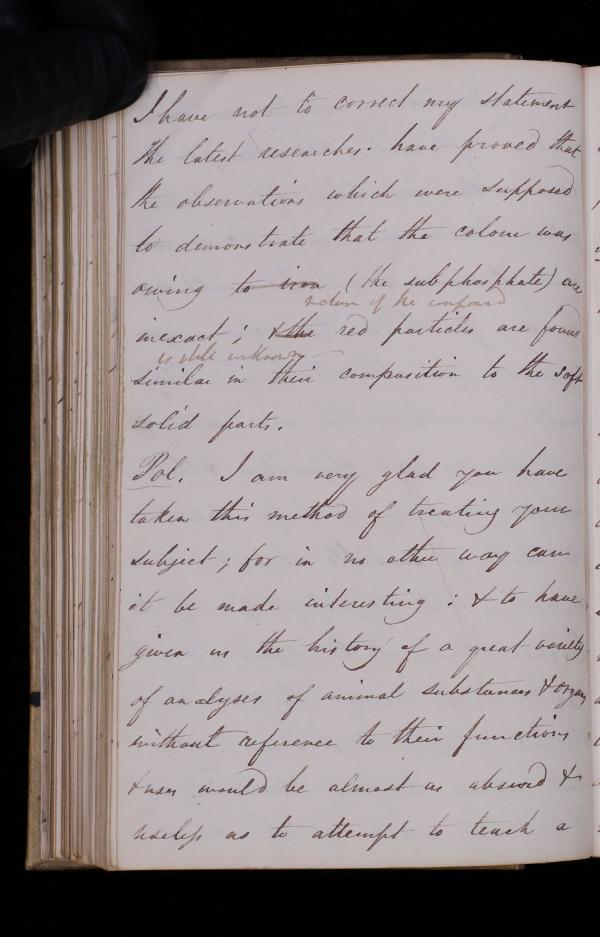 I have not to correct my statement
the latest researches. have proved that
the observations which were supposed
to demonstrate that the colour was
owing to iron (the subphosphate) are
nature of the
inexact; & the red particles are found
is still unknown
similar in their composition to the soft
solid parts.
Pol. I am very glad you have
taken this method of treating your
subject; for in no other way can
it be made interesting: & to have
given us the history of a great variety
of analyses of animal substances & organs
without reference to their functions
& uses would be almost as absurd &
useless as to attempt to teach a